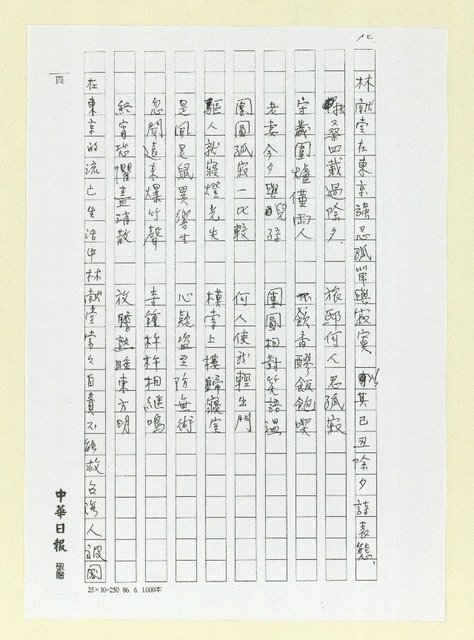 林献堂在東京強忍孤單與寂寞 以其己丑除夕詩表態.
扶桑四載過除夕. 旅邸何人忍孤寂
守歲圍爐僅兩人 飲香醪飯飽喫
老妻今夕與兒孫 團圓相對笑語溫
團圓孤寂一比較 何人使我輕出門
驅人就寢燈光失 模索上樓歸寢室
是風是鼠異響生 心疑盜至防無術
忽聞遠來爆竹聲 寺鐘杵杵相繼鳴
終宵恐懼盡消散 放膽熟睡東方明
在東京的流亡生活中林献堂常々自責不能救台灣人被國
頁
中華日報
25×10=250 86. 6. 1,000本